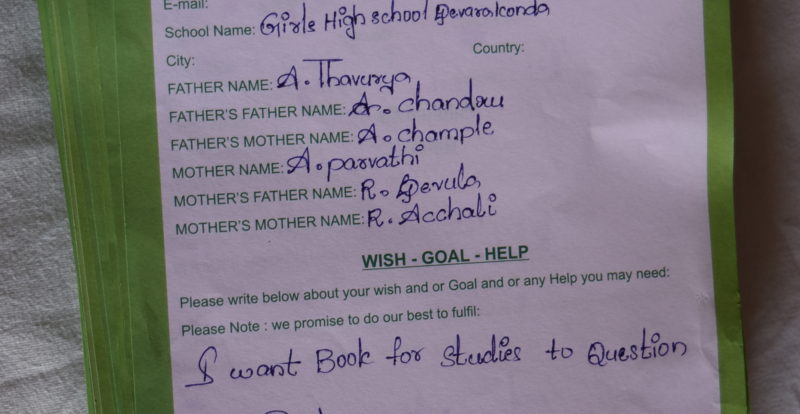 E-mail:
School Name: Girls High school Devaralconda
City: Country:
FATHER NAME: A. Thavurya
FATHER'S FATHER NAME: A. chandru
FATHER'S MOTHER NAME: A. chample
MOTHER NAME: A. parvathi
MOTHER'S FATHER NAME: R. Devula
MOTHER'S MOTHER NAME: R. Acchali
WISH - GOAL - HELP
Please write below about your wish and or Goal and or any Help you may need:
Please Note : we promise to do our best to fulfil:
I want Book for studies to Question